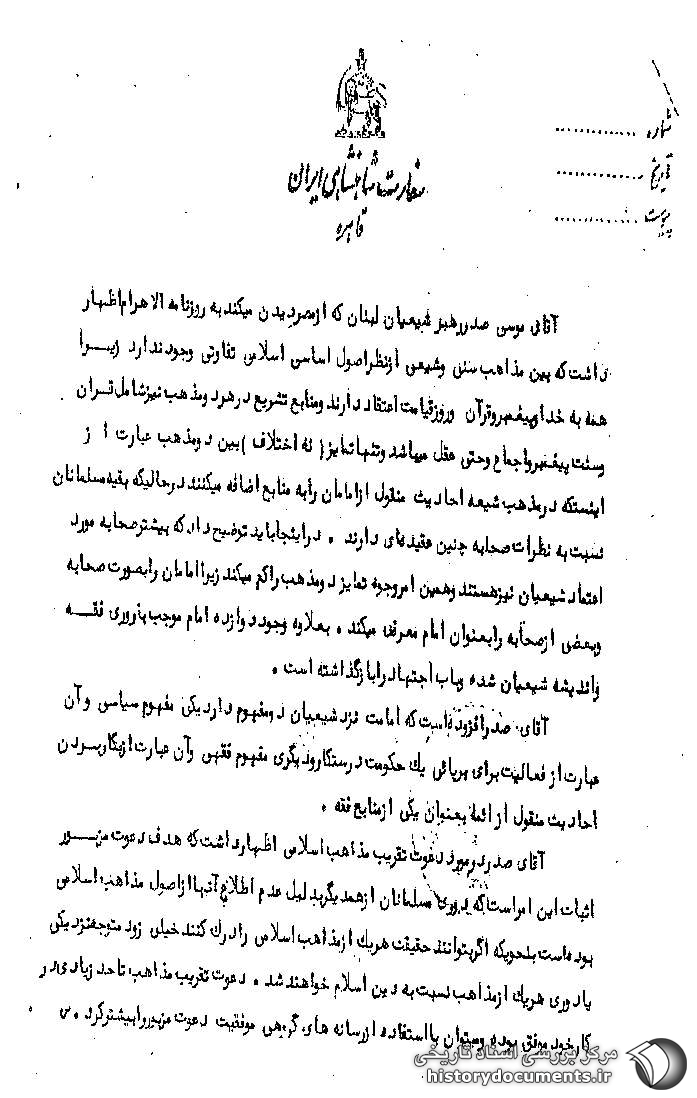 شماره ............
تاریخ ............
پیوست ............
سفارت شاهنشاهی ایران
قاهره
آقای موسی صدر رهبر شیعیان لبنان که از مصر دیدن میکند به روزنامه الاهرام اظهار
داشت که بین مذاهب سنی وشیعی از نظر اصول اساسی اسلامی تفاوتی وجود ندارد زیرا
همه به خدا وپیغمبر وقرآن وروز قیامت اعتقاد دارند ومنابع تشریع در هر دو مذهب نیز شامل قرآن
وسنت پیغمبر واجماع وحتی عقل میباشد وتنها تمایز ( نه اختلاف ) بین دو مذهب عبارت از
اینستکه در مذهب شیعه احادیث منقول از امامان را به منابع اضافه میکنند در حالیکه بقیه مسلمانان
نسبت به نظرات صحابه چنین عقیده‌ای دارند . در اینجا باید توضیح داد که بیشتر صحابه مورد
اعتماد شیعیان نیز هستند وهمین امر وجوه تمایز دو مذهب را کم میکند زیرا امامان را بصورت صحابه
وبعضی از صحابه را بعنوان امام معرفی میکند . بعلاوه وجود دوازده امام موجب باروری فقه
واندیشه شیعیان شده وباب اجتهاد را باز گذاشته است .
آقای صدر افزوده است که امامت نزد شیعیان دو مفهوم دارد یکی مفهوم سیاسی و آن
عبارت از فعالیت برای برپائی یک حکومت درستکار ودیگری مفهوم فقهی وآن عبارت از بکار بردن
احادیث منقول از ائمه بعنوان یکی از منابع فقه .
آقای صدر در مورد دعوت تقریب مذاهب اسلامی اظهار داشت که هدف دعوت مزبور
اثبات این امر است که دوری مسلمانان از همدیگر بدلیل عدم اطلاع آنها از اصول مذاهب اسلامی
بوده است بنحویکه اگر بتوانند حقیقت هر یک از مذاهب اسلامی را درک کنند خیلی زود متوجه نزدیکی
یا دوری هر یک از مذاهب نسبت به دین اسلام خواهند شد . دعوت تقریب مذاهب تا حد زیادی در
کار خود موفق بوده ومیتوان با استفاده از رسانه های گروهی موفقیت دعوت مزبور را بیشتر کرد .
مرکز بررسی اسناد تاریخی
historydocuments.ir